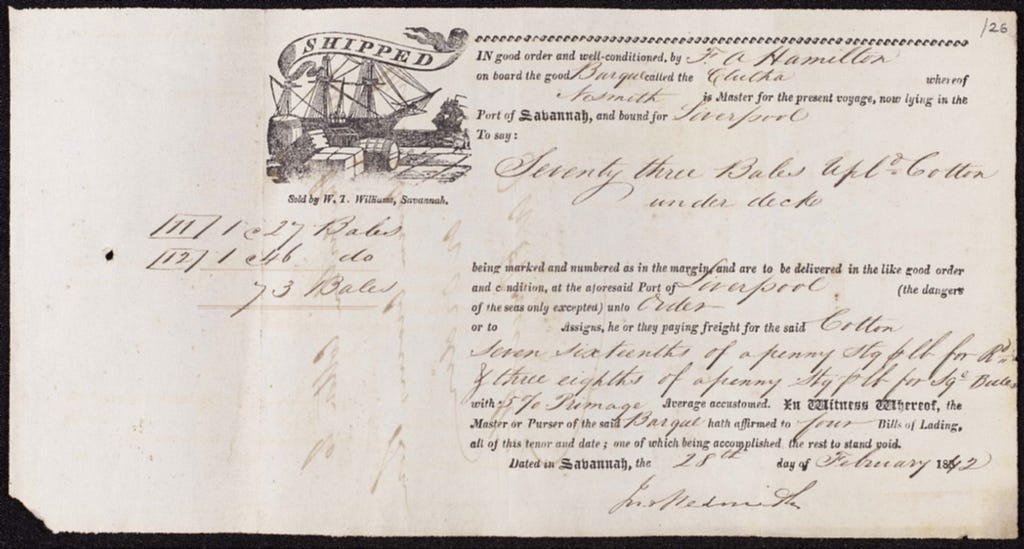 126
SHIPPED
IN good order and well-conditioned, by F A Hamilton
on board the good Barque called the Clutha whereof
Nesmith is Master for the present voyage, now lying in the
Port of Savannah, and bound for Liverpool
To say:
Seventy three Bales Upld Cotton
under deck
Sold by W. T. Williams, Savannah.
[11] 1 c 27 Bales
[12] 1 c 46 do
73 Bales
being marked and numbered as in the margin, and are to be delivered in the like good order
and condition, at the aforesaid Port of Liverpool (the dangers
of the seas only excepted) unto Order
or to Assigns, he or they paying freight for the said Cotton
seven sixteenths of a penny Stg p lb for Rd
& three eighths of a penny Stg p lb for Sqe Bales
with 5% Primage Average accustomed. In Witness Whereof, the
Master or Purser of the said Barque hath affirmed to four Bills of Lading,
all of this tenor and date; one of which being accomplished the rest to stand void.
Dated in Savannah, the 28th day of February 1842